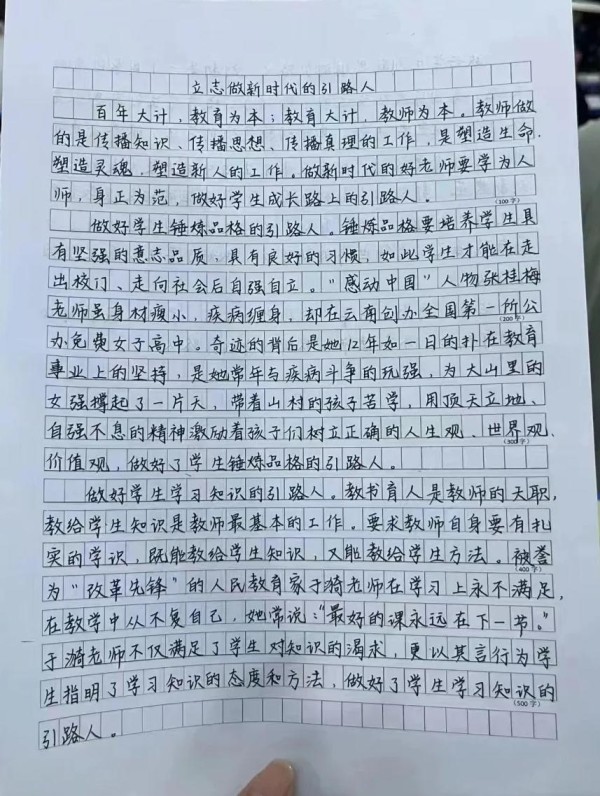 立志做新时代的引路人
百年大计，教育为本；教育大计，教师为本。教师做
的是传播知识、传播思想、传播真理的工作，是塑造生命、
塑造灵魂、塑造新人的工作。做新时代的好老师要学为人
师，身正为范，做好学生成长路上的引路人。
(100字)
做好学生锤炼品格的引路人。锤炼品格要培养学生具
有坚强的意志品质，具有良好的习惯，如此学生才能在走
出校门、走向社会后自强自立。“感动中国”人物张桂梅
老师虽身材瘦小，疾病缠身，却在云南创办全国第一所公
(200字)
办免费女子高中。奇迹的背后是她12年如一日的扑在教育
事业上的坚持，是她常年与疾病斗争的玩强，为大山里的
女强撑起了一片天，带着山村的孩子苦学，用顶天立地、
自强不息的精神激励着孩子们树立正确的人生观、世界观、
(300字)
价值观，做好了学生锤炼品格的引路人。
做好学生学习知识的引路人。教书育人是教师的天职，
教给学生知识是教师最基本的工作。要求教师自身要有扎
实的学识，既能教给学生知识，又能教给学生方法。被誉
(400字)
为“改革先锋”的人民教育家于漪老师在学习上永不满足，
在教学中从不复自己，她常说：“最好的课永远在下一节。”
于漪老师不仅满足了学生对知识的渴求，更以其言行为学
生指明了学习知识的态度和方法，做好了学生学习知识的
(500字)
引路人。